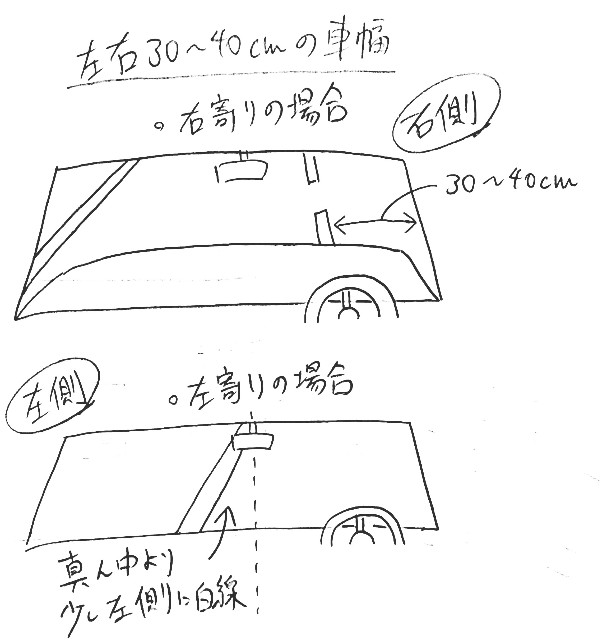 左右30～40cmの車幅
○右寄りの場合
右側
30～40cm
左側
○左寄りの場合
真ん中より
少し左側に白線